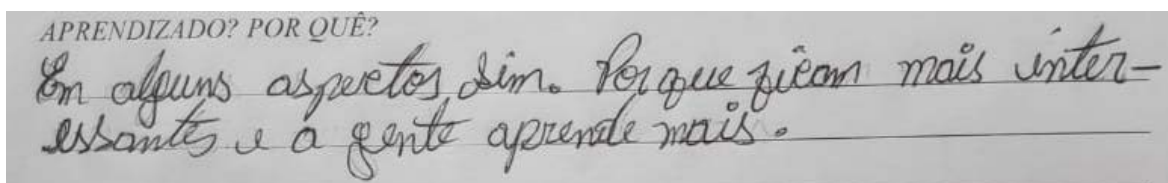 APRENDIZADO? POR QUÊ?
Em alguns aspectos sim. Porque ficam mais inter-
essantes e a gente aprende mais.